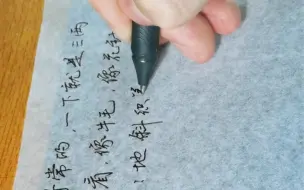 常的，一下就是三两
看，像牛毛，像花
地斜织